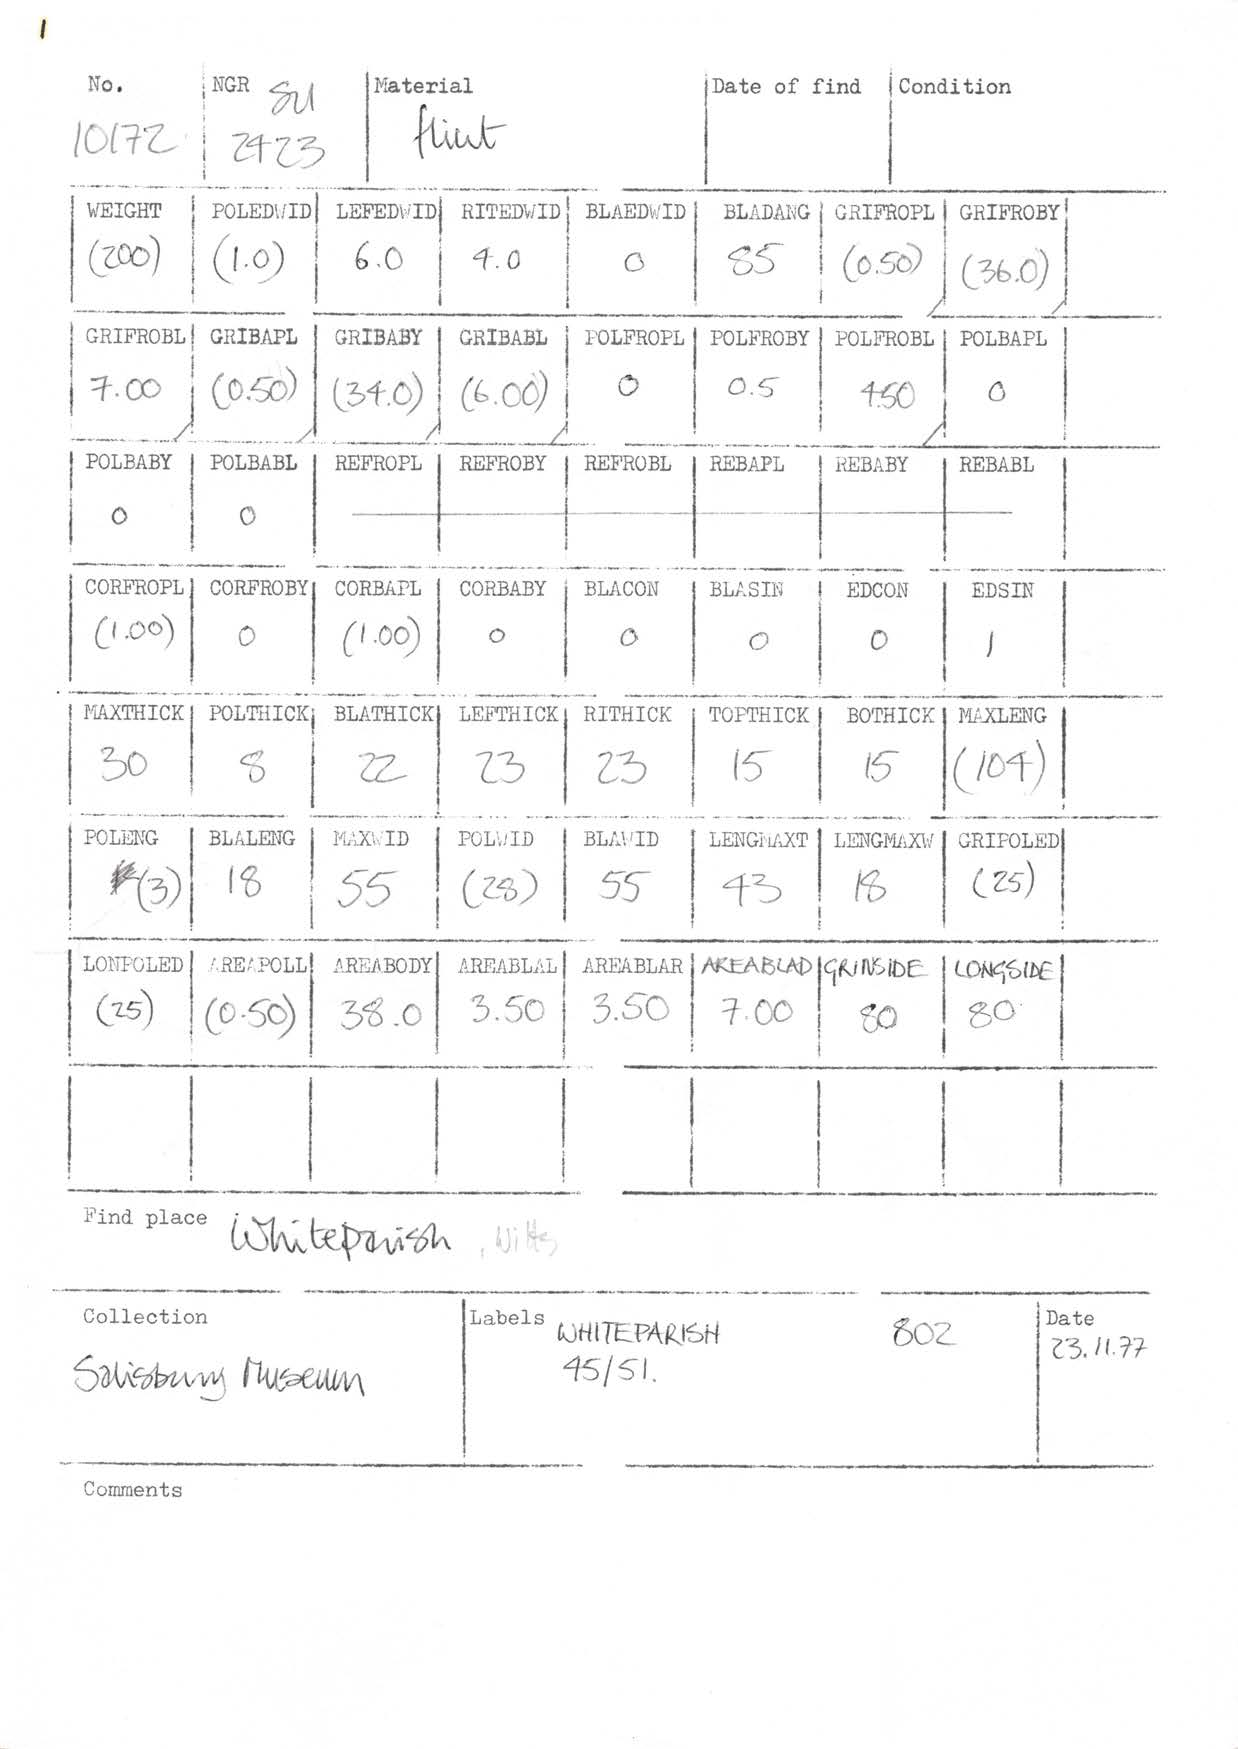 1
No. NGR SU Material Date of find Condition
10172 2423 flint
WEIGHT POLEDWID LEFEDWID RITEDWID BLAEDWID BLADANG GRIFROPL GRIFROBY
(200) (1.0) 6.0 4.0 0 85 (0.50) (36.0)
GRIFROBL GRIBAPL GRIBABY GRIBABL POLFROPL POLFROBY POLFROBL POLBAPL
7.00 (0.50) (34.0) (6.00) 0 0.5 4.50 0
POLBABY POLBABL REFROPL REFROBY REFROBL REBAPL REBABY REBABL
0 0
CORFROPL CORFROBY CORBAPL CORBABY BLACON BLASIN EDCON EDSIN
(1.00) 0 (1.00) 0 0 0 0 1
MAXTHICK POLTHICK BLATHICK LEFTHICK RITHICK TOPTHICK BOTHICK MAXLENG
30 8 22 23 23 15 15 (104)
POLENG BLALENG MAXWID POLWID BLAWID LENGMAXT LENGMAXW GRIPOLED
(3) 18 55 (28) 55 43 18 (25)
LONPOLED AREAPOLL AREABODY AREABLAL AREABLAR AREABLAD GRINSIDE LONGSIDE
(25) (0.50) 38.0 3.50 3.50 7.00 80 80
Find place Whiteparish, Wilts
Collection Labels WHITEPARISH 802 Date
Salisbury Museum 45/51. 23.11.77
Comments